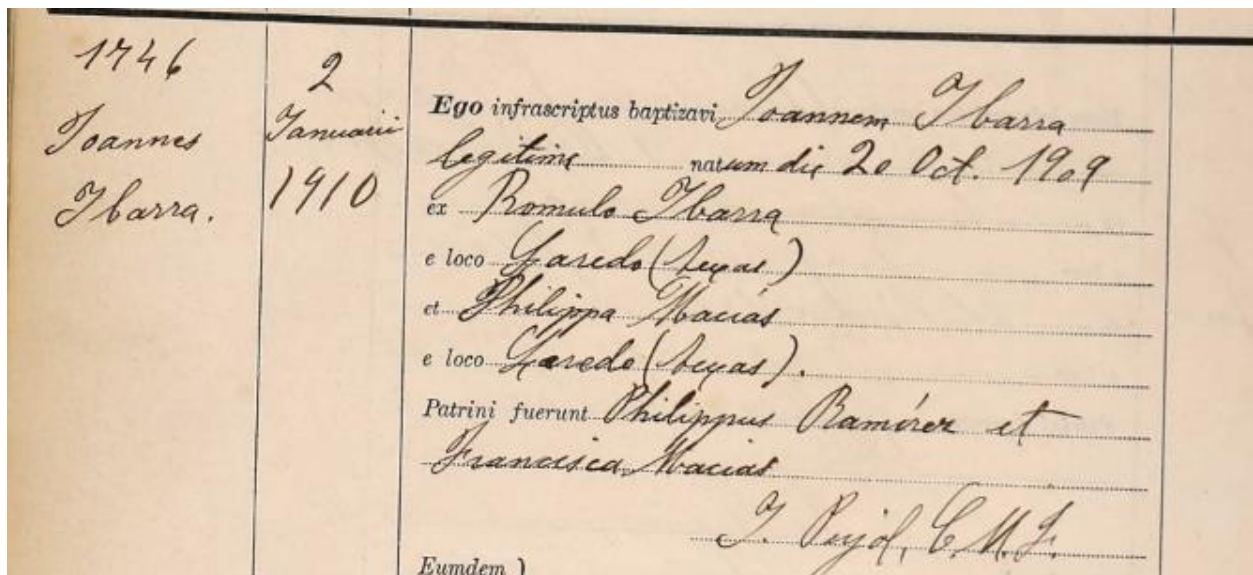 1746
Joannes
Ibarra.
2
Januarii
1910
Ego infrascriptus baptizavi Joannem Ibarra
legitime natum die 20 Oct. 1909
ex Romulo Ibarra
e loco Laredo (Texas)
et Philippa Macias
e loco Laredo (Texas).
Patrini fuerunt Philippus Ramírez et
Francisca Macias
J. Pujol, C. M. F.
Eumdem )